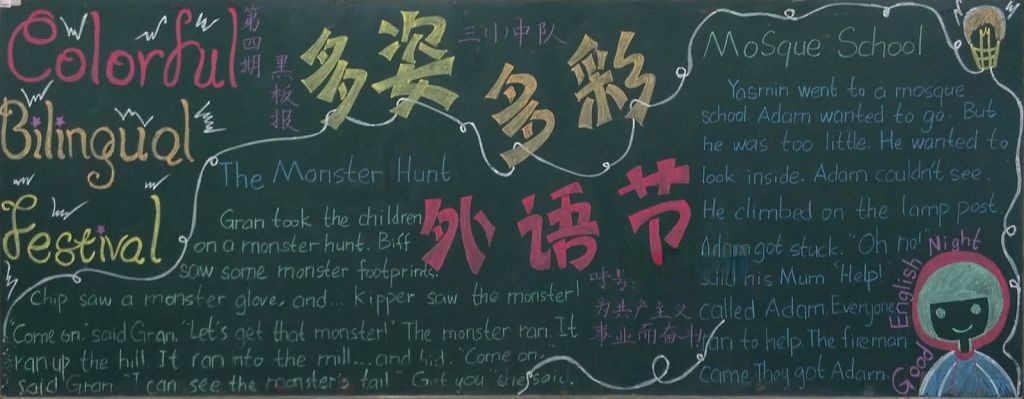 Colorful
Bilingual
Festival
第四期
黑板报
多姿多彩
三(1)中队
外语节
The Monster Hunt
Gran took the children
on a monster hunt. Biff
saw some monster footprints.
Chip saw a monster glove, and... Kipper saw the monster!
"Come on," said Gran. "Let's get that monster!" The monster ran. It
ran up the hill. It ran into the mill...and hid. "Come on,"
said Gran. "I can see the monster's tail" "Got you" she said.
呼号:
为共产主义
事业而奋斗!
MoSque School
Yasmin went to a mosque
school. Adam wanted to go. But
he was too little. He wanted to
look inside. Adam couldn't see.
He climbed on the lamp post
Adam got stuck. "Oh no!"
said his Mum "Help!"
called Adam. Everyone
ran to help. The fireman
came They got Adam.
Good English Night